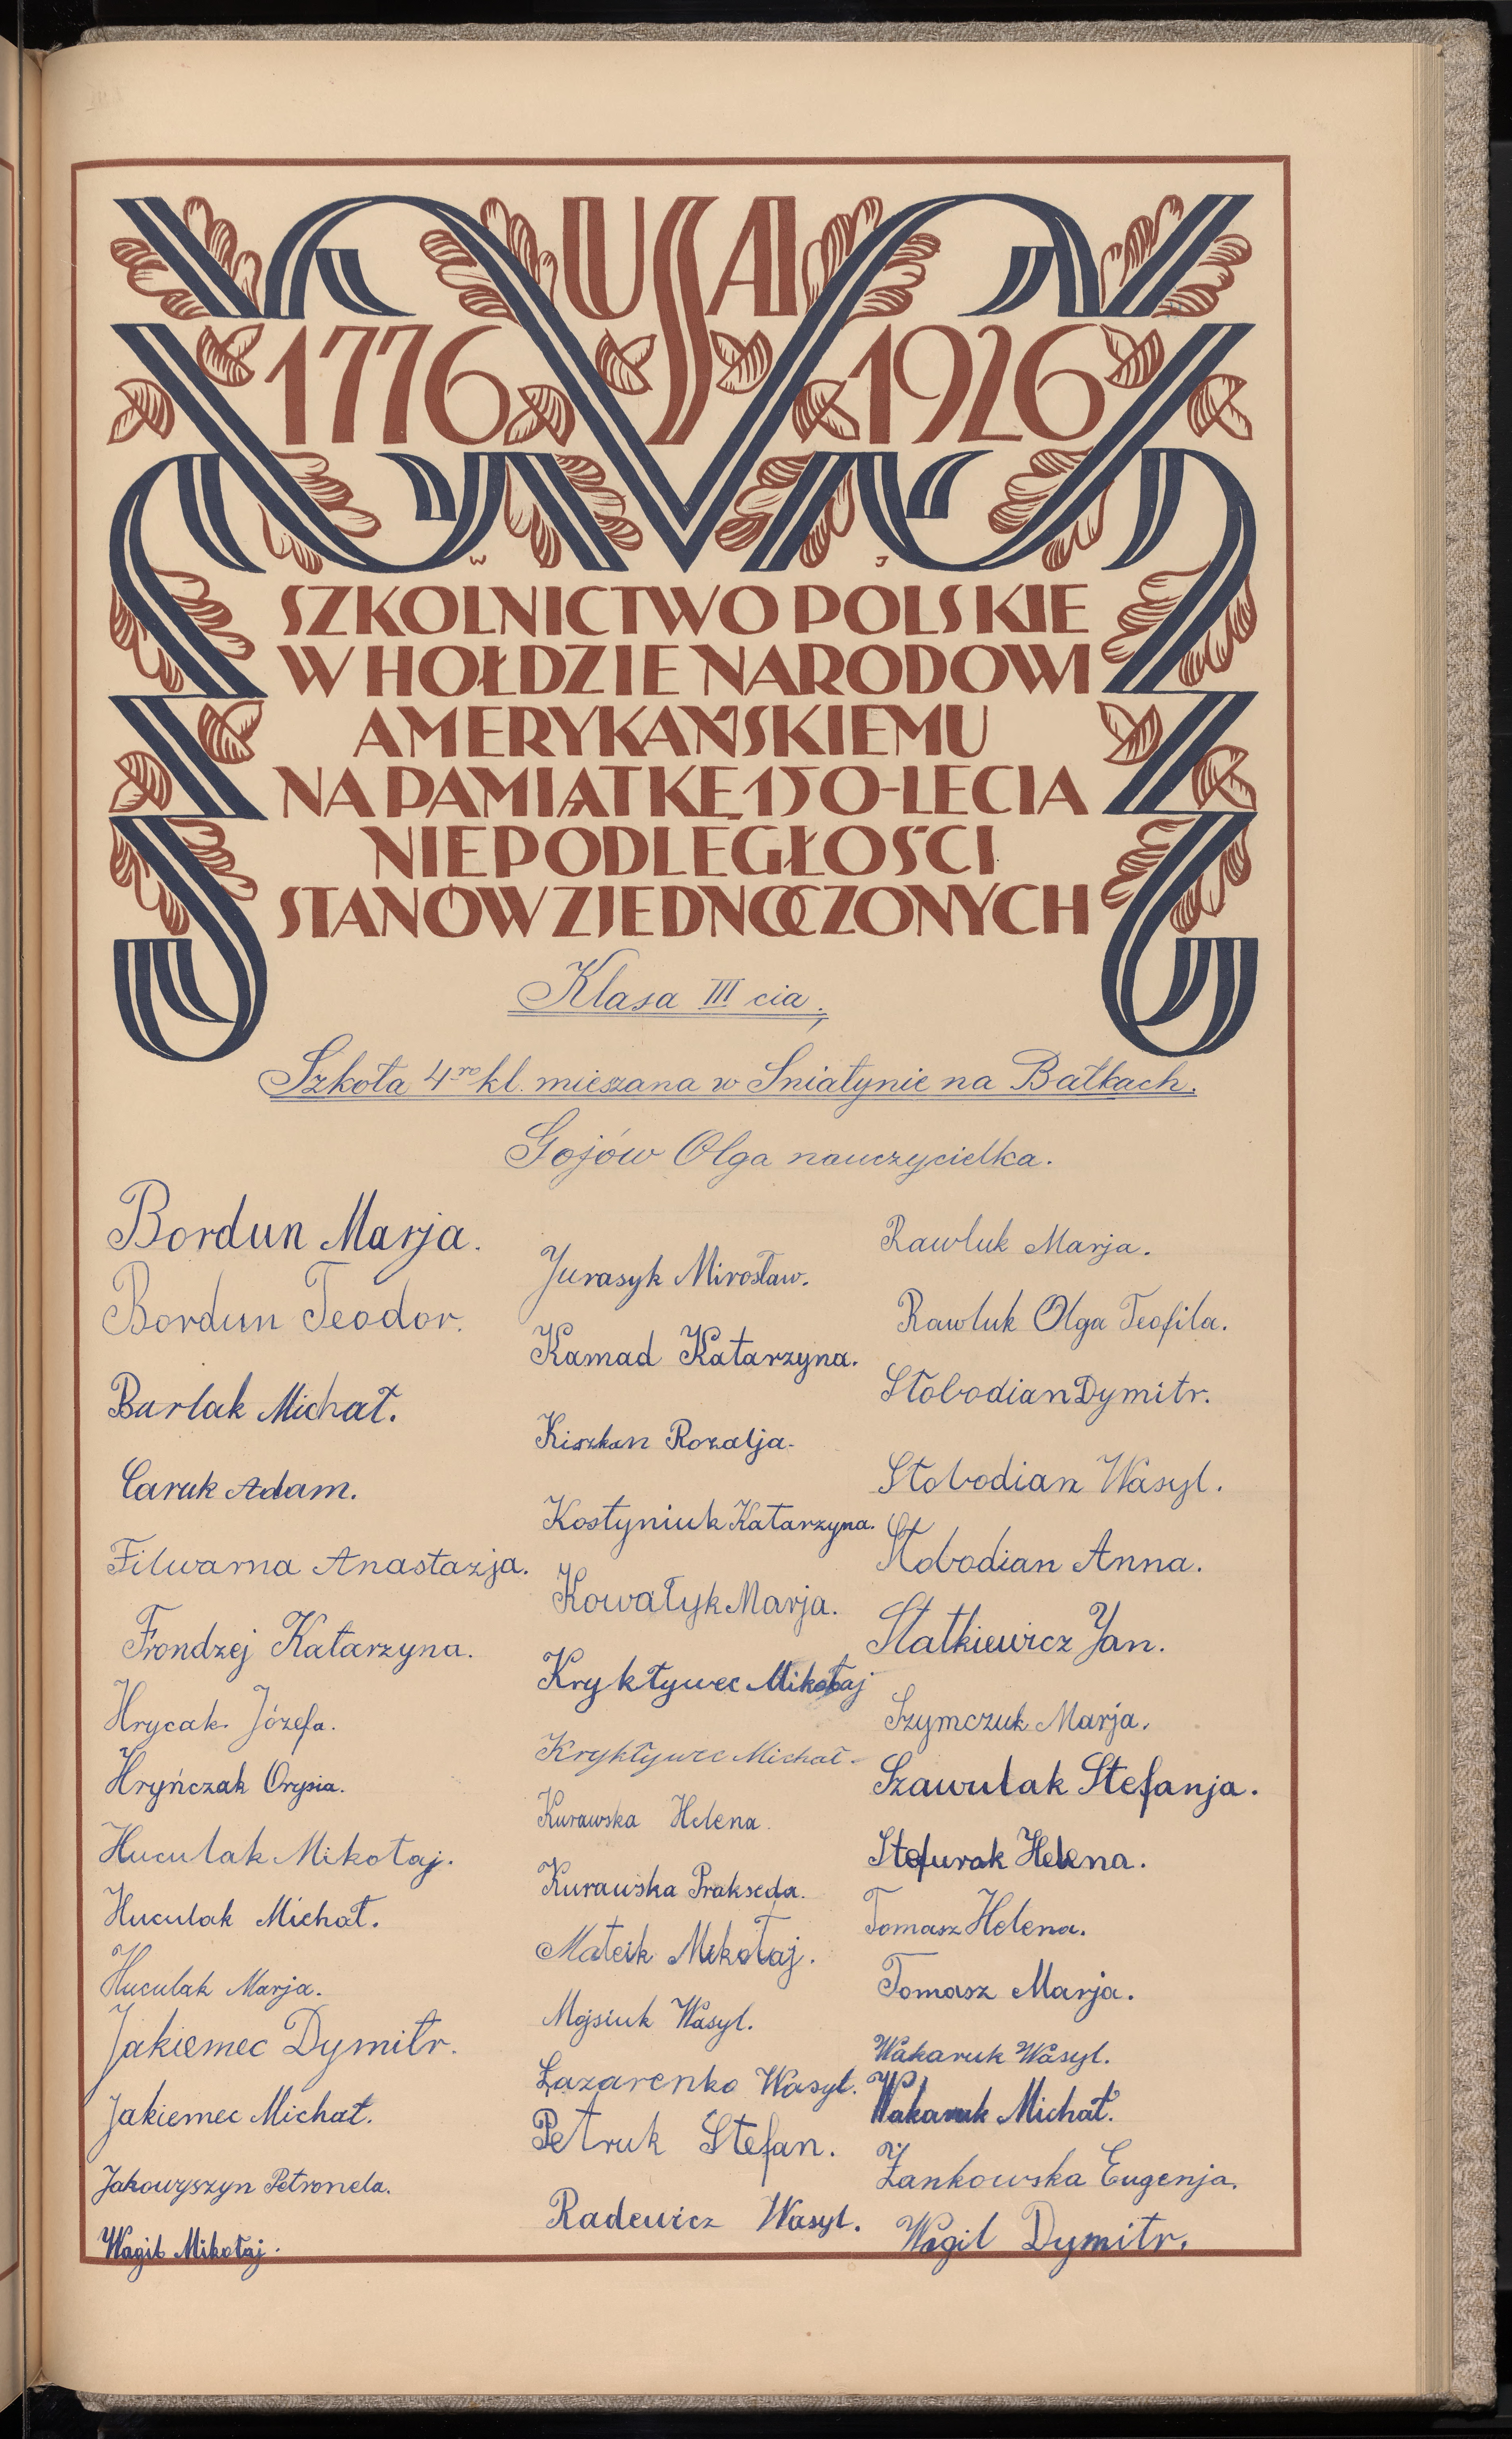 USA
1776 1926
W J
SZKOLNICTWO POLSKIE
W HOŁDZIE NARODOWI
AMERYKAŃSKIEMU
NA PAMIĄTKĘ 150-LECIA
NIEPODLEGŁOŚCI
STANÓW ZJEDNOCZONYCH
Klasa III cia,
Szkoła 4ro kl. mieszana w Sniatynie na Bałkach.
Gojów Olga nauczycielka.
Bordun Marja.
Bordun Teodor.
Burlak Michał.
Caruk Adam.
Filwarna Anastazja.
Frondzej Katarzyna.
Hrycak Józefa.
Hryńczak Orysia.
Huculak Mikołaj.
Huculak Michał.
Huculak Marja.
Jakiemec Dymitr.
Jakiemec Michał.
Jakowyszyn Petronela.
Wagil Mikołaj.
Jurasyk Mirosław.
Kamad Katarzyna.
Kiszkan Rozalja.
Kostyniuk Katarzyna.
Kowałyk Marja.
Kryktywec Mikołaj
Kryktywec Michał.
Kurawska Helena.
Kurawska Prakseda.
Mateik Mikołaj.
Mojsiuk Wasyl.
Łazarenko Wasyl.
Petruk Stefan.
Radewicz Wasyl.
Rawluk Marja.
Rawluk Olga Teofila.
Słobodian Dymitr.
Słobodian Wasyl.
Słobodian Anna.
Statkiewicz Jan.
Szymczuk Marja.
Szawulak Stefanja.
Stefurak Helena.
Tomasz Helena.
Tomasz Marja.
Wakaruk Wasyl.
Wakaruk Michał.
Żankowska Eugenja.
Wagil Dymitr.